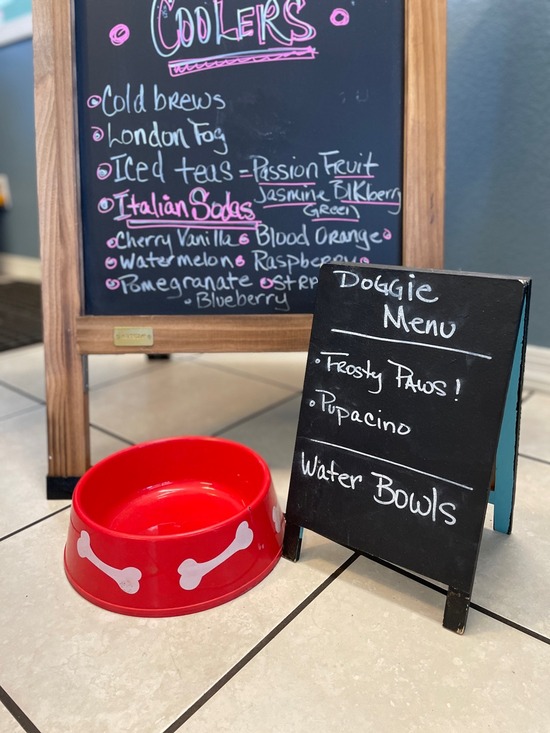 COOLERS
Cold brews
London Fog
Iced teas = Passion Fruit
Jasmine Blkberry
Green
Italian Sodas
Cherry Vanilla Blood Orange
Watermelon Raspberry
Pomegranate
Blueberry
Doggie
Menu
Frosty Paws!
Pupacino
Water Bowls